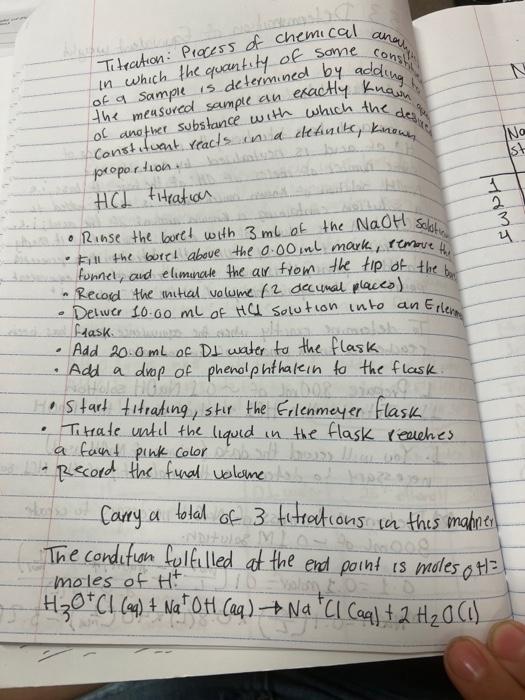 Titration: Process of chemical
in which the quantity of some
of a sample is determined by adding
the measured sample an exactly known
of another substance with which the
constituent reacts in a definite, known
proportion.
HCl titration
• Rinse the buret with 3 mL of the NaOH
• Fill the buret above the 0.00 mL mark, remove the
funnel, and eliminate the air from the tip of the
• Record the initial volume (2 decimal places)
• Deliver 10.00 mL of HCl solution into an
flask.
• Add 20.0 mL of DI water to the flask
• Add a drop of phenolphthalein to the flask.
• Start titrating, stir the Erlenmeyer flask
• Titrate until the liquid in the flask reaches
a faint pink color
• Record the final volume
Carry a total of 3 titrations in this manner
The condition fulfilled at the end point is moles OH=
moles of H⁺
H₃O⁺Cl (aq) + Na⁺OH (aq) → Na⁺Cl (aq) + 2 H₂O (l)
1
2
3
4